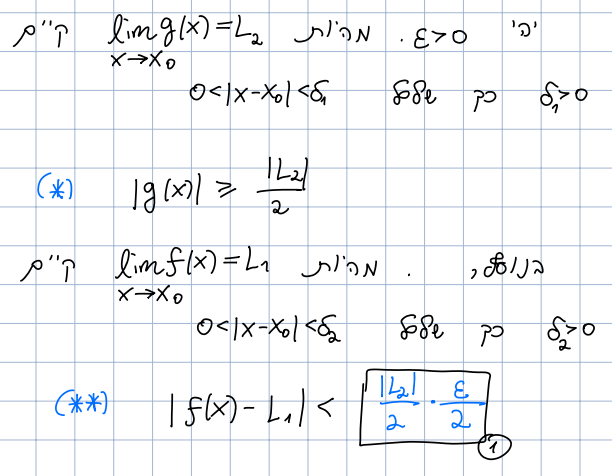 יהי ε>0. מהיות lim g(x)=L₂ קיים
x→x₀
δ₁>0 כך שלכל 0<|x-x₀|<δ₁
(*) |g(x)| ⩾ |L₂|/2
בנוסף, . מהיות lim f(x)=L₁ קיים
x→x₀
δ₂>0 כך שלכל 0<|x-x₀|<δ₂
(**) |f(x)-L₁| < |L₂|/2 · ε/2
1